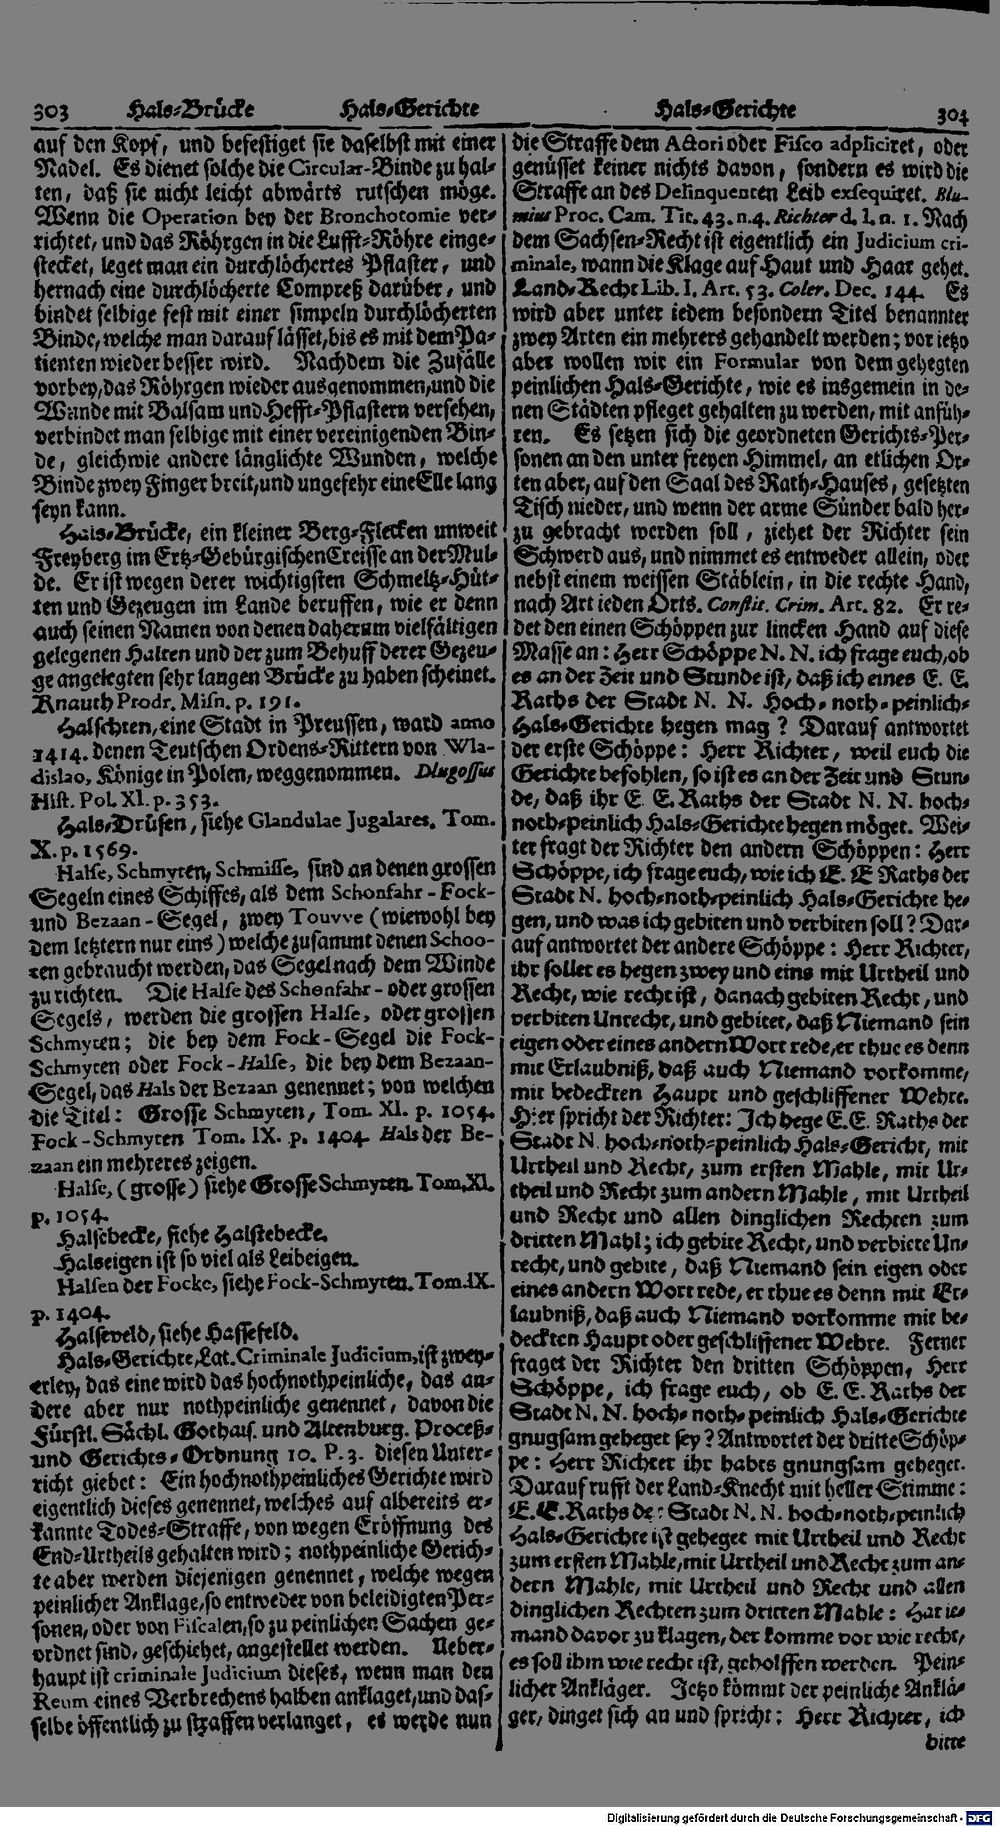 303 Hals-Brücke Hals-Gerichte
Hals-Gerichte 304
auf den Kopf, und befestiget sie daselbst mit einer
Nadel. Es dienet solche die Circular-Binde zu hal-
ten, daß sie nicht leicht abwärts rutschen möge.
Wenn die Operation bey der Bronchotomie ver-
richtet, und das Röhrgen in die Lufft-Röhre einge-
stecket, leget man ein durchlöchertes Pflaster, und
hernach eine durchlöcherte Compreß darüber, und
bindet selbige fest mit einer simpeln durchlöcherten
Binde, welche man darauf lässet, bis es mit dem Pa-
tienten wieder besser wird. Nachdem die Zufälle
vorbey, das Röhrgen wieder ausgenommen, und die
Wunde mit Balsam und Hefft-Pflastern versehen,
verbindet man selbige mit einer vereinigenden Bin-
de, gleichwie andere länglichte Wunden, welche
Binde zwey Finger breit, und ungefehr eine Elle lang
seyn kann.
Hals-Brücke, ein kleiner Berg-Flecken unweit
Freyberg im Ertz-Gebürgischen Creisse an der Mul-
de. Er ist wegen derer wichtigsten Schmeltz-Hüt-
ten und Gezeugen im Lande beruffen, wie er denn
auch seinen Namen von denen daherum vielfältigen
gelegenen Halten und der zum Behuff derer Gezeu-
ge angelegten sehr langen Brücke zu haben scheinet.
Knauth Prodr. Misn. p. 191.
Halschten, eine Stadt in Preussen, ward anno
1414. denen Teutschen Ordens-Rittern von Wla-
dislao, Könige in Polen, weggenommen. Dlugossus
Hist. Pol. XI. p. 353.
Hals-Drüsen, siehe Glandulae Jugalares. Tom.
X. p. 1569.
Halse, Schmyten, Schmisse, sind an denen grossen
Segeln eines Schiffes, als dem Schonfahr-Fock-
und Bezaan-Segel, zwey Touvve (wiewohl bey
dem letztern nur eins) welche zusammt denen Schoo-
ten gebraucht werden, das Segel nach dem Winde
zu richten. Die Halse des Schonfahr- oder grossen
Segels, werden die grossen Halse, oder grossen
Schmyten; die bey dem Fock-Segel die Fock-
Schmyten oder Fock-Halse, die bey dem Bezaan-
Segel, das Hals der Bezaan genennet; von welchen
die Titel: Grosse Schmyten, Tom. XI. p. 1054.
Fock-Schmyten Tom. IX. p. 1404 Hals der Be-
zaan ein mehreres zeigen.
Halse, (grosse) siehe Grosse Schmyten. Tom. XI.
p. 1054.
Halsebecke, siehe Halstebecke.
Halseigen ist so viel als Leibeigen.
Halsen der Focke, siehe Fock-Schmyten. Tom. IX.
p. 1404.
Halseveld, siehe Hassefeld.
Hals-Gerichte, Lat. Criminale Judicium, ist zwey-
erley, das eine wird das hochnothpeinliche, das an-
dere aber nur nothpeinliche genennet, davon die
Fürstl. Sächs. Gothaif. und Altenburg. Proceß-
und Gerichts-Ordnung 10. P. 3. diesen Unter-
richt giebet: Ein hochnothpeinliches Gerichte wird
eigentlich dieses genennet, welches auf albereits er-
kannte Todes-Straffe, von wegen Eröffnung des
End-Urtheils gehalten wird; nothpeinliche Gerich-
te aber werden diejenigen genennet, welche wegen
peinlicher Anklage, so entweder von beleidigten Per-
sonen, oder von Fiscalen, so zu peinlichen Sachen ge-
ordnet sind, geschiehet, angestellet werden. Ueber-
haupt ist criminale Judicium dieses, wenn man den
Reum eines Verbrechens halben anklaget, und das-
selbe öffentlich zu straffen verlanget, es werde nun
die Straffe dem Actori oder Fisco adpliciret, oder
genüsset keiner nichts davon, sondern es wird die
Straffe an des Delinquenten Leib exsequiret. Blu-
mius Proc. Cam. Tit. 43. n. 4. Richter d. l. n. 1. Nach
dem Sachsen-Recht ist eigentlich ein Judicium cri-
minale, wann die Klage auf Haut und Haar gehet.
Land-Recht Lib. I. Art. 53. Coler. Dec. 144. Es
wird aber unter iedem besondern Titel benannter
zwey Arten ein mehrers gehandelt werden; vor ietzo
aber wollen wir ein Formular von dem gehegten
peinlichen Hals-Gerichte, wie es insgemein in de-
nen Städten pfleget gehalten zu werden, mit anfüh-
ren. Es setzen sich die geordneten Gerichts-Per-
sonen an den unter freyen Himmel, an etlichen Or-
ten aber, auf den Saal des Rath-Hauses, gesetzten
Tisch nieder, und wenn der arme Sünder bald her-
zu gebracht werden soll, ziehet der Richter sein
Schwerd aus, und nimmet es entweder allein, oder
nebst einem weissen Stäblein, in die rechte Hand,
nach Art ieden Orts. Constit. Crim. Art. 82. Er re-
det den einen Schöppen zur lincken Hand auf diese
Masse an: Herr Schöppe N. N. ich frage euch, ob
es an der Zeit und Stunde ist, daß ich eines E. E.
Raths der Stadt N. N. Hoch-noth-peinlich-
Hals-Gerichte hegen mag? Darauf antwortet
der erste Schöppe: Herr Richter, weil euch die
Gerichte befohlen, so ist es an der Zeit und Stun-
de, daß ihr E. E. Raths der Stadt N. N. hoch-
noth-peinlich Hals-Gerichte hegen möget. Wei-
ter fragt der Richter den andern Schöppen: Herr
Schöppe, ich frage euch, wie ich E. E Raths der
Stadt N. hoch-noth-peinlich Hals-Gerichte he-
gen, und was ich gebiten und verbiten soll? Dar-
auf antwortet der andere Schöppe: Herr Richter,
ihr sollet es hegen zwey und eins mit Urtheil und
Recht, wie recht ist, danach gebiten Recht, und
verbiten Unrecht, und gebitet, daß Niemand sein
eigen oder eines andern Wort rede, er thue es denn
mit Erlaubniß, daß auch Niemand vorkomme,
mit bedeckten Haupt und geschliffener Wehre.
Hier spricht der Richter: Ich hege E. E. Raths der
Stadt N. hoch-noth-peinlich Hals-Gericht, mit
Urtheil und Recht, zum ersten Mahle, mit Ur-
theil und Recht zum andern Mahle, mit Urtheil
und Recht und allen dinglichen Rechten zum
dritten Mahl; ich gebite Recht, und verbiete Un-
recht, und gebite, daß Niemand sein eigen oder
eines andern Wort rede, er thue es denn mit Er-
laubniß, daß auch Niemand vorkomme mit be-
deckten Haupt oder geschliffener Wehre. Ferner
fraget der Richter den dritten Schöppen, Herr
Schöppe, ich frage euch, ob E. E. Raths der
Stadt N. N. hoch-noth-peinlich Hals-Gerichte
gnugsam geheget sey? Antwortet der dritte Schöp-
pe: Herr Richter ihr habts gnungsam geheget.
Darauf rufft der Land-Knecht mit heller Stimme:
E. E. Raths der Stadt N. N. hoch-noth-peinlich
Hals-Gerichte ist geheget mit Urtheil und Recht
zum ersten Mahle, mit Urtheil und Recht zum an-
dern Mahle, mit Urtheil und Recht und allen
dinglichen Rechten zum dritten Mahle: Hat ie-
mand davor zu klagen, der komme vor wie recht,
es soll ihm wie recht ist, geholffen werden. Pein-
licher Ankläger. Jetzo kömmt der peinliche Anklä-
ger, dinget sich an und spricht: Herr Richter, ich
bitte
Digitalisierung gefördert durch die Deutsche Forschungsgemeinschaft - DFG